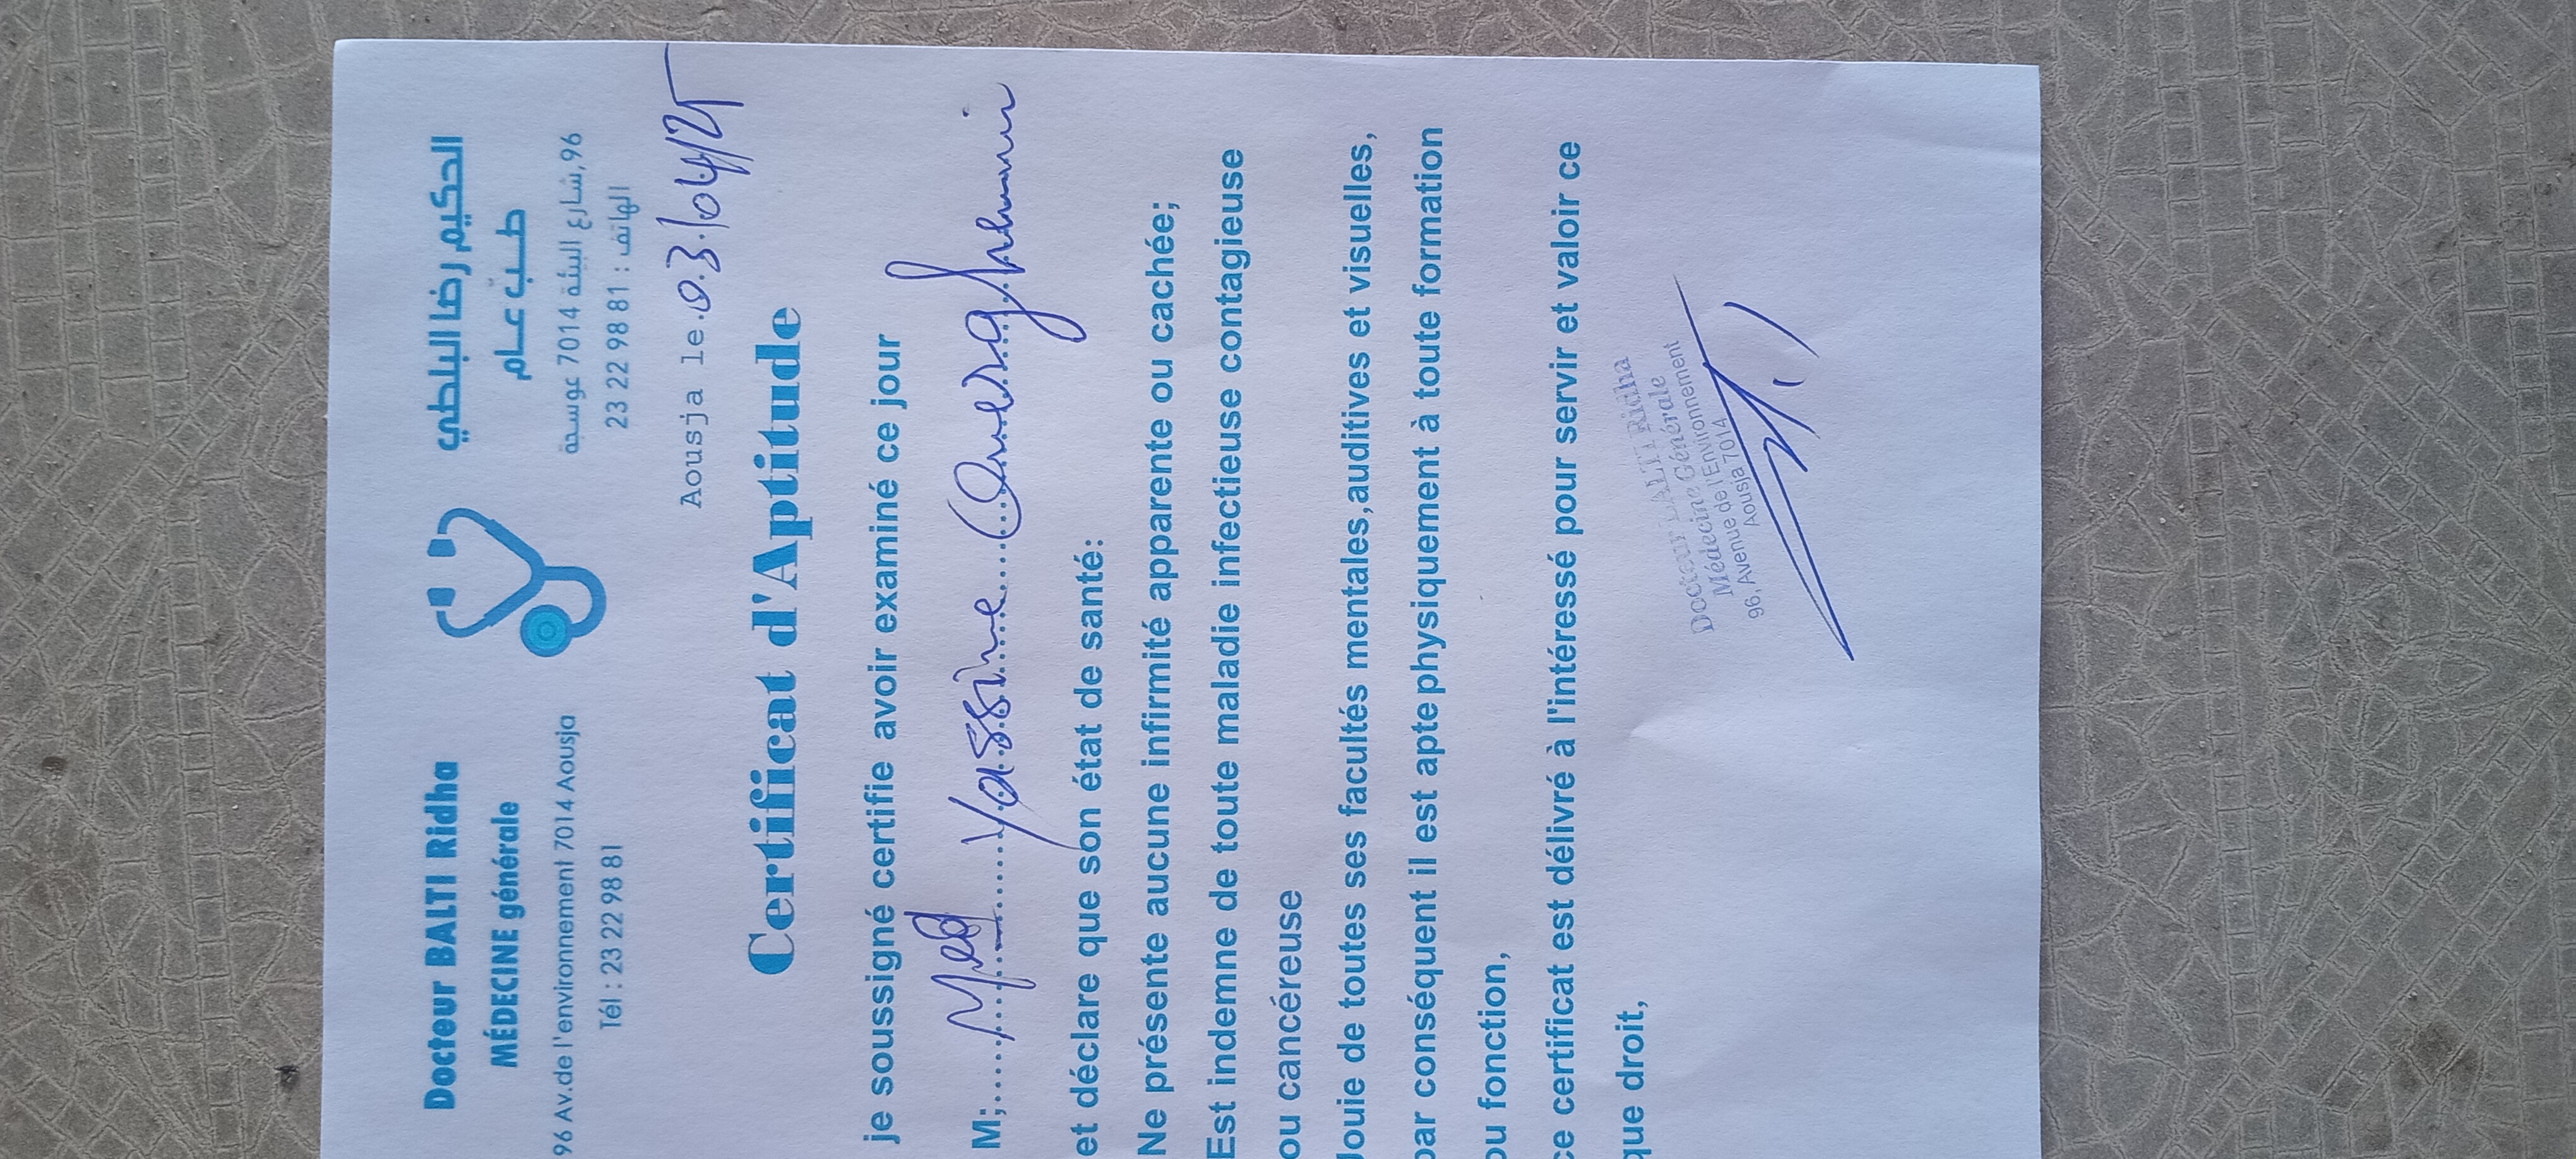 Docteur BALTI Ridha
MÉDECINE générale
96 Av.de l'environnement 7014 Aousja
Tél : 23 22 98 81
الحكيم رضا البلطي
طب عام
96,شارع البيئة 7014 عوسجة
الهاتف : 81 98 22 23
Aousja le.03/04/25
Certificat d'Aptitude
je soussigné certifie avoir examiné ce jour
M;.....Med.....Yassine.....
et déclare que son état de santé:
Ne présente aucune infirmité apparente ou cachée;
Est indemne de toute maladie infectieuse contagieuse
ou cancéreuse
Jouie de toutes ses facultés mentales,auditives et visuelles,
par conséquent il est apte physiquement à toute formation
ou fonction,
ce certificat est délivré à l'intéressé pour servir et valoir ce
que droit,
Docteur BALTI Ridha
Médecine Générale
96, Avenue de l'Environnement
Aousja 7014